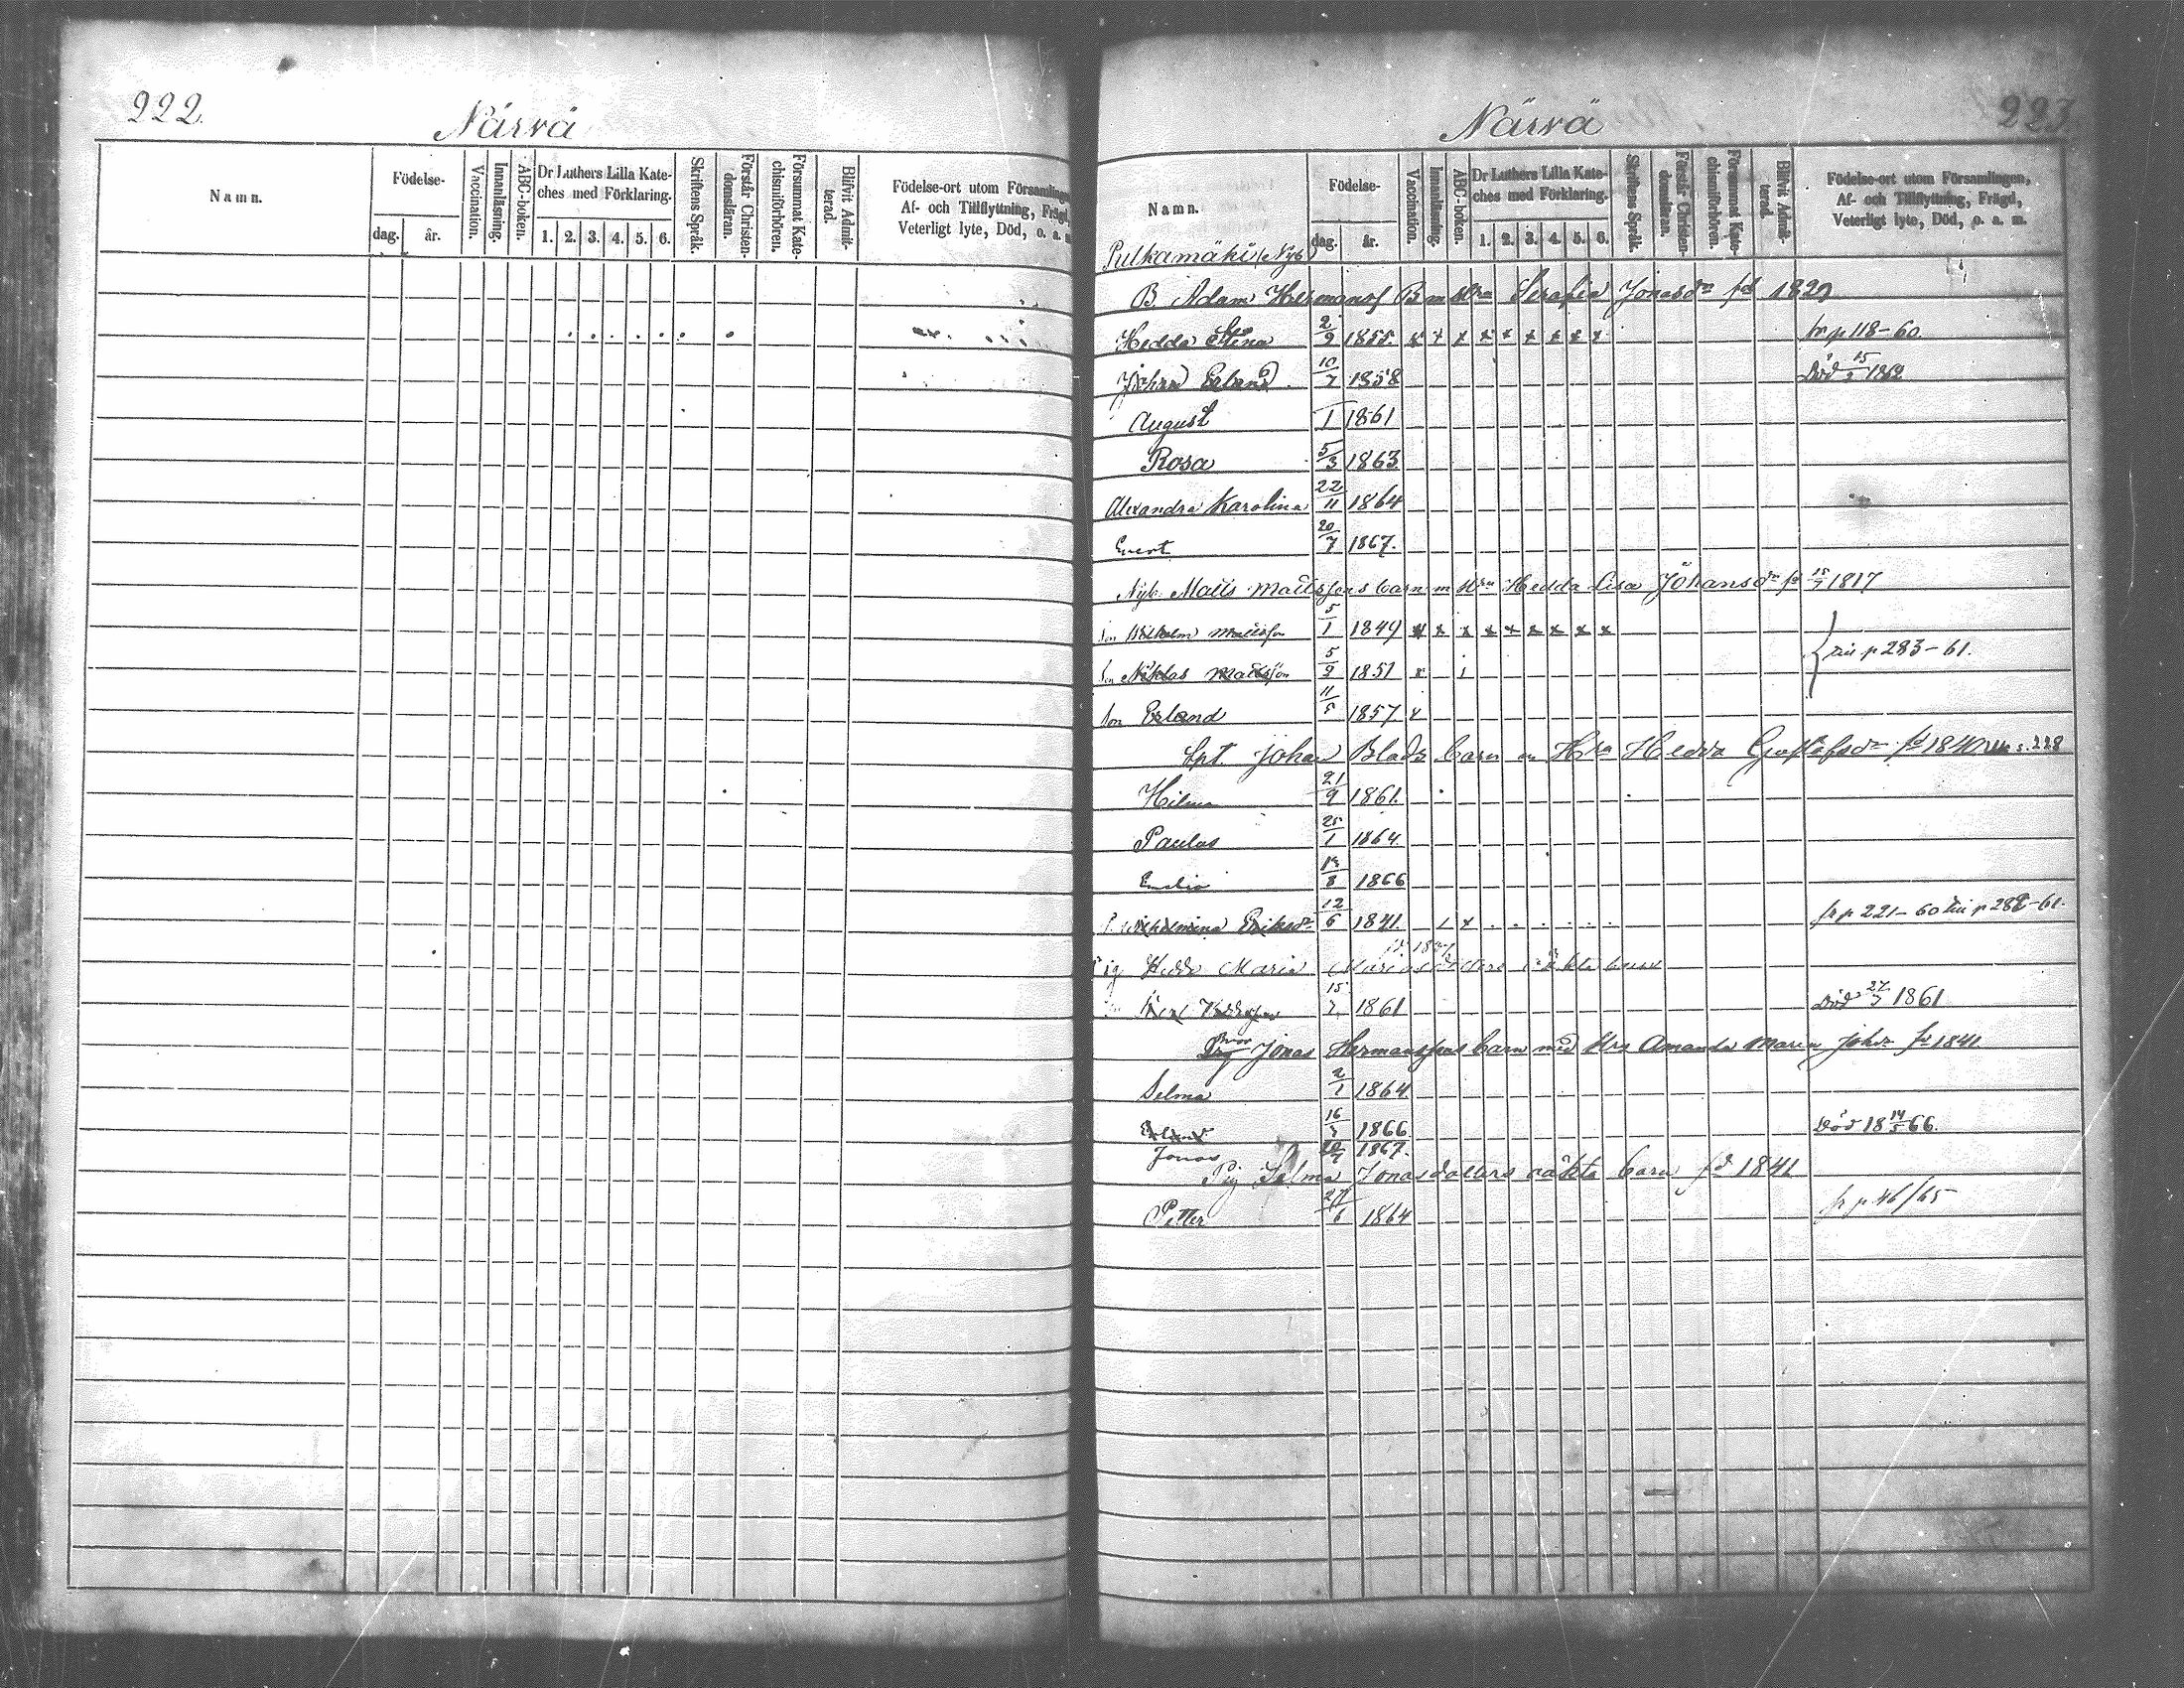 222.
Närvä
Namn.
Födelse-
dag. år.
Vaccination.
Innanläsning.
ABC-boken.
Dr Luthers Lilla Kate-
ches med Förklaring.
1. 2. 3. 4. 5. 6.
Skriftens Språk.
Förstår Christen-
domsläran.
Försummat Kate-
chismiförhören.
Blifvit Admit-
terad.
Födelse-ort utom Församlingen,
Af- och Tillflyttning, Frägd,
Veterligt lyte, Död, o. a. m.
Närvä
223.
Namn.
Födelse-
dag. år.
Vaccination.
Innanläsning.
ABC-boken.
Dr Luthers Lilla Kate-
ches med Förklaring.
1. 2. 3. 4. 5. 6.
Skriftens Språk.
Förstår Christen-
domsläran.
Försummat Kate-
chismiförhören.
Blifvit Admit-
terad.
Födelse-ort utom Församlingen,
Af- och Tillflyttning, Frägd,
Veterligt lyte, Död, o. a. m.
Pulkamäki (Nyb)
B Adam Hermansf B m Hra Serafia Jonasdr född 1829
Hedda Stina 2/9 1855. x x x x x x x x x fr p 118-60.
Johan Erland 10/7 1858 Död 15/3 1862
August 1 1861
Rosa 5/3 1863
Alexandra Karolina 22/11 1864
Evert 20/7 1867.
Nyb. Matts Mattsfons barn m Hra Hedda Lisa Johansdr fd 15/7 1817
Son Wilhelm Mattsfon 5/1 1849 x x x x x x x x x
Son Niklas Mattsfon 5/2 1851 x 1 til p 283-61.
Son Erland 11/5 1857 x
Spt. Johan Blads barn m Hra Hedda Gustafsdr fd 1840 s. 228
Hilma 21/9 1861.
Paulas 25/1 1864.
Emelia 8 1866
Wilhelmina Eriksdr 12/6 1841. fr p 221-60 til p -61.
Pig Hedda Maria Mariasdotters oäkta barn
15 1861 Död 27/7 1861
Jonas Hermansfons barn med Hra Amanda Maria Johdr fd 1841.
Selma 2/1 1864.
Erland 16/3 1866. Död 18 14/5 66.
Jonas 1867.
Pig Selma Jonasdotters oäkta barn fd 1841
Petter 27/6 1864 fr p 46/65